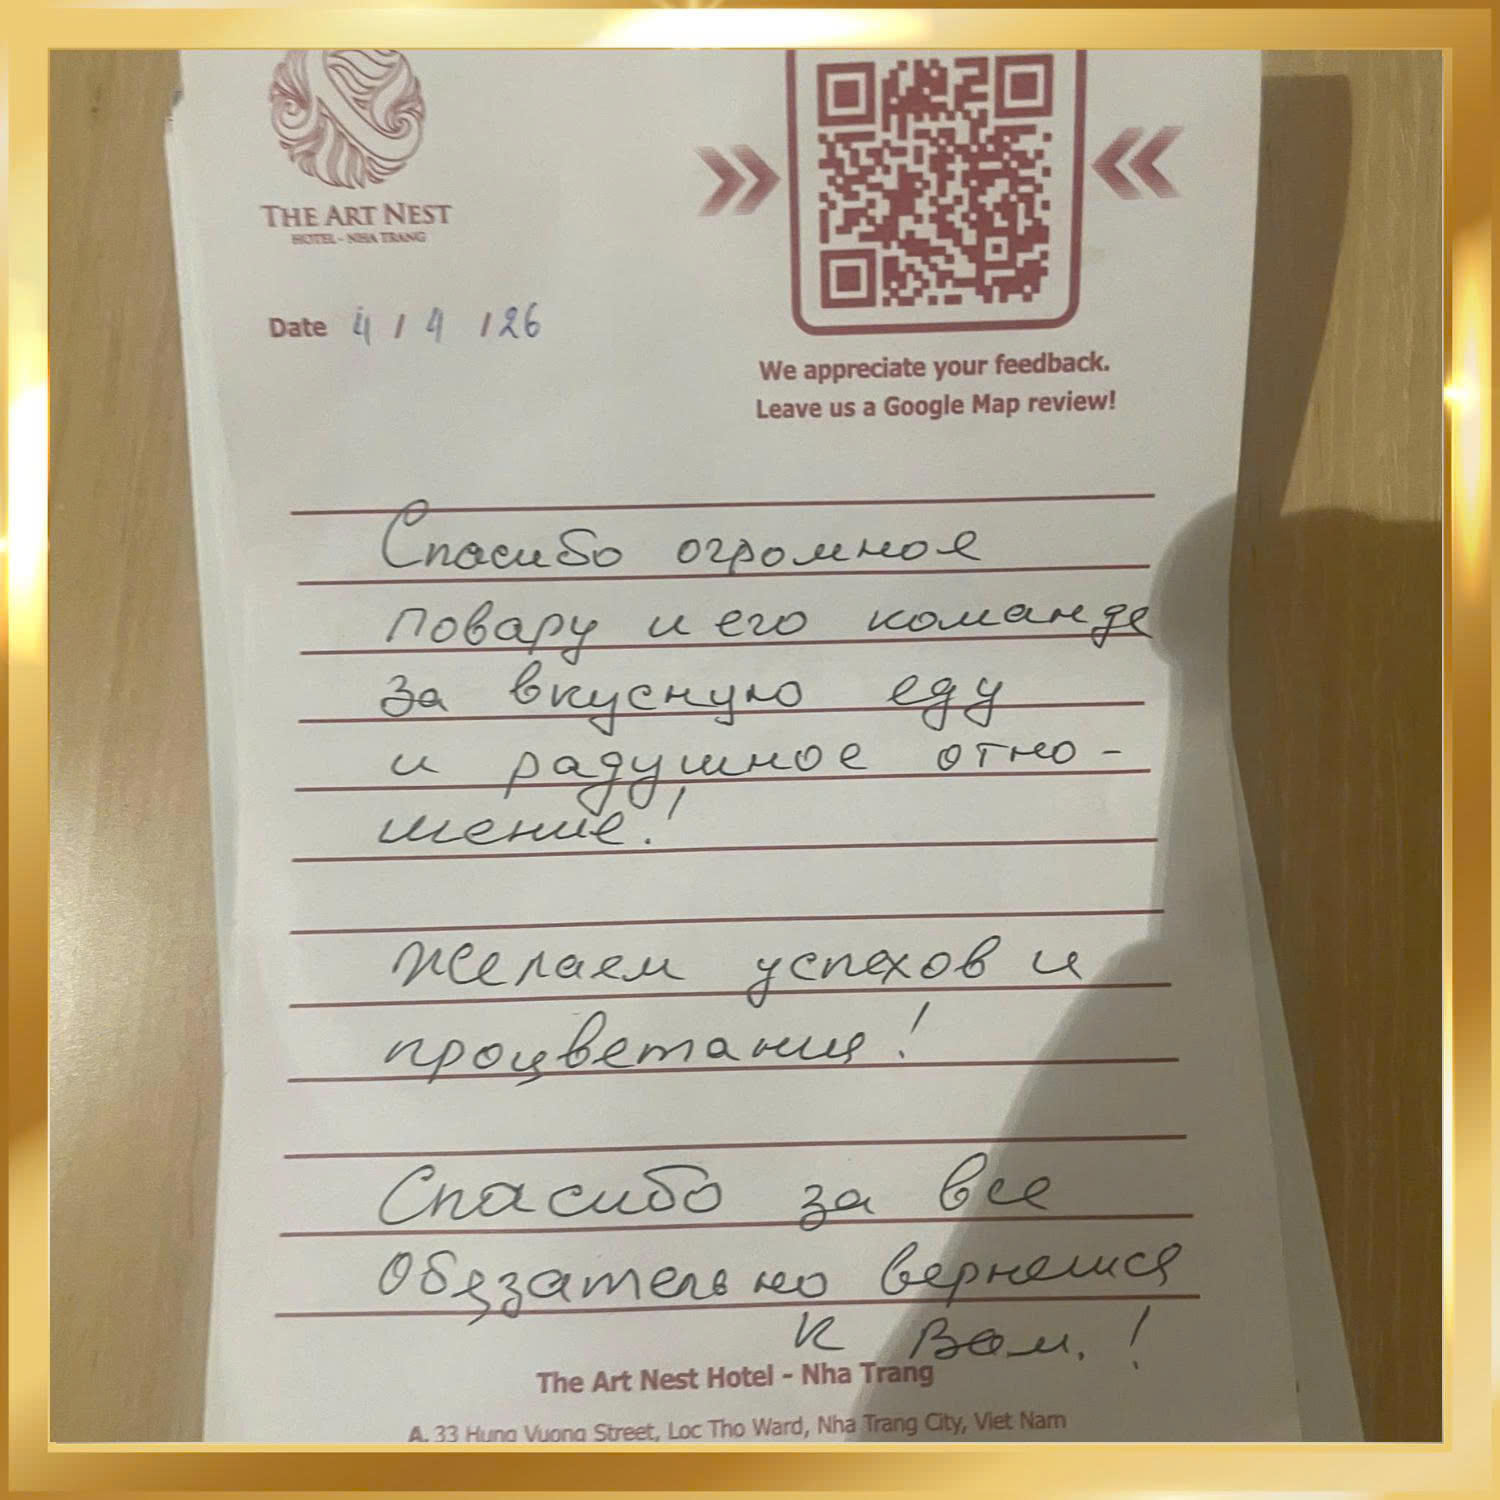 THE ART NEST
HOTEL - NHA TRANG
Date 4 / 4 / 26
We appreciate your feedback.
Leave us a Google Map review!
Спасибо огромное
повару и его команде
за вкусную еду
и радушное отно-
шение!
Желаем успехов и
процветания!
Спасибо за все
Обязательно вернемся
к Вам.!
The Art Nest Hotel - Nha Trang
A. 33 Hung Vuong Street, Loc Tho Ward, Nha Trang City, Viet Nam